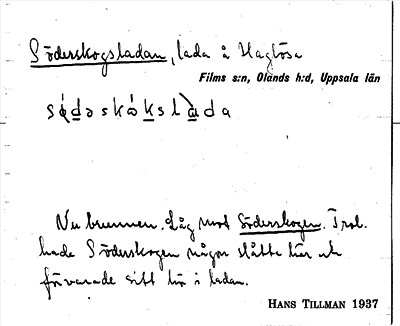 Söderskogsladan, lada å Haglösa
Films s:n, Olands h:d, Uppsala län
sǿdəskȧkslȧda
Nu brunnen. Låg mot Söderskogen. Trol.
hade Söderskogen någon slåtta här och
förvarade sitt hö i ladan.
HANS TILLMAN 1937